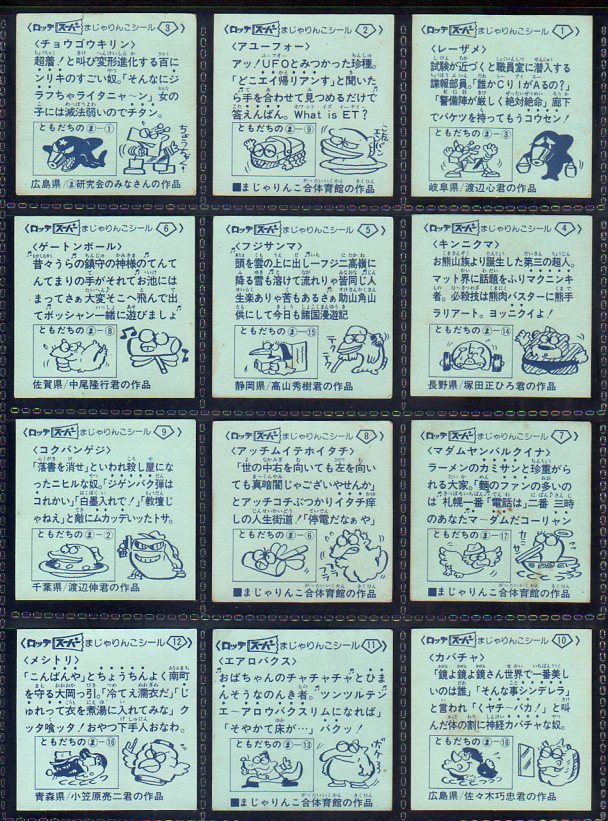 ロッテ スーパー まじゃりんこシール 3
〈チョウゴウキリン〉
超着!と叫び変形進化する百に
ンリキのすごい奴。「そんなにジ
ラフちゃライタニャ〜ン」女の
子には滅法弱いのでチタン。
ともだちの ま-1
ちょうッ
広島県/ま研究会のみなさんの作品
ロッテ スーパー まじゃりんこシール 2
〈アユーフォー〉
アッ!UFOとみつかった珍種。
「どこエイ帰りアンす」と聞いた
ら手を合わせて見つめるだけで
答えんばん。What is ET?
ともだちの ま-9
■まじゃりんこ合体育館の作品
ロッテ スーパー まじゃりんこシール 1
〈レーザメ〉
試験が近づくと職員室に潜入する
諜報部員。「誰かCりIがAるの?」
「警備陣が厳しく絶対絶命」廊下
でバケツを持ってもうコウセン!
ともだちの ま-3
岐阜県/渡辺心君の作品
ロッテ スーパー まじゃりんこシール 6
〈ゲートンボール〉
昔々うらの鎮守の神様のてんて
んてまりの手がそれてお池には
まってさぁ大変そこへ飛んで出
てボッシャン一緒に遊びましょ
ともだちの ま-8
佐賀県/中尾隆行君の作品
ロッテ スーパー まじゃりんこシール 5
〈フジサンマ〉
頭を雲の上に出し一フジ二高嶺に
降る雪も溶けて流れりゃ皆同じ人
生楽ありゃ苦もあるさぁ助山角山
供にして今日も諸国漫遊記
ともだちの ま-15
静岡県/高山秀樹君の作品
ロッテ スーパー まじゃりんこシール 4
〈キンニクマ〉
お熊山族より誕生した第三の超人。
マット界に話題をふりマクニンキ
者。必殺技は熊肉バスターに熊手
ラリアート。ヨッニクイよ!
ともだちの ま-14
長野県/塚田正ひろ君の作品
ロッテ スーパー まじゃりんこシール 9
〈コクバンゲジ〉
「落書を消せ」といわれ殺し屋にな
ったニヒルな奴。「ジゲンバク弾は
コレかい」「白墨入れで!」「教壇じ
ゃねえ」と敵にムカッデいったトサ。
ともだちの ま-2
千葉県/渡辺伸君の作品
ロッテ スーパー まじゃりんこシール 8
〈アッチムイテホイタチ〉
「世の中右を向いても左を向い
ても真暗闇じゃございやせんか」
とアッチコチぶつかりイタチ痒
しの人生街道!「停電だなぁや」
ともだちの ま-6
フラフラ
■まじゃりんこ合体育館の作品
ロッテ スーパー まじゃりんこシール 7
〈マダムヤンバルクイナ〉
ラーメンのカミサンと珍重がら
れる大家。「麵のファンの多いの
は札幌一番「電話は」二番 三時
のあなたマ〜ダムだコーリャン
ともだちの ま-17
■まじゃりんこ合体育館の作品
ロッテ スーパー まじゃりんこシール 12
〈メシトリ〉
「こんばんや」とちょうちんよく南町
を守る大岡っ引。「冷てえ濡衣だ」「じ
ゅれって衣を煮湯に入れてみな」ク
ッタ喰ッタ!おやつ下手人おなわ。
ともだちの ま-16
青森県/小笠原亮二君の作品
ロッテ スーパー まじゃりんこシール 11
〈エアロバクス〉
おばちゃんのチャチャチャとひま
んそうなのんき者。「ツンツルテン
エ〜アロウバクスリムになれば」
「そやかて床が…」バクッ!
ともだちの ま-13
■まじゃりんこ合体育館の作品
ロッテ スーパー まじゃりんこシール 10
〈カバチャ〉
「鏡よ鏡よ鏡さん世界で一番美し
いのは誰」「そんな事シンデレラ」
と言われ「くヤチ〜バカ!」と叫
んだ体の割に神経カバチャな奴。
ともだちの ま-18
広島県/佐々木巧忠君の作品